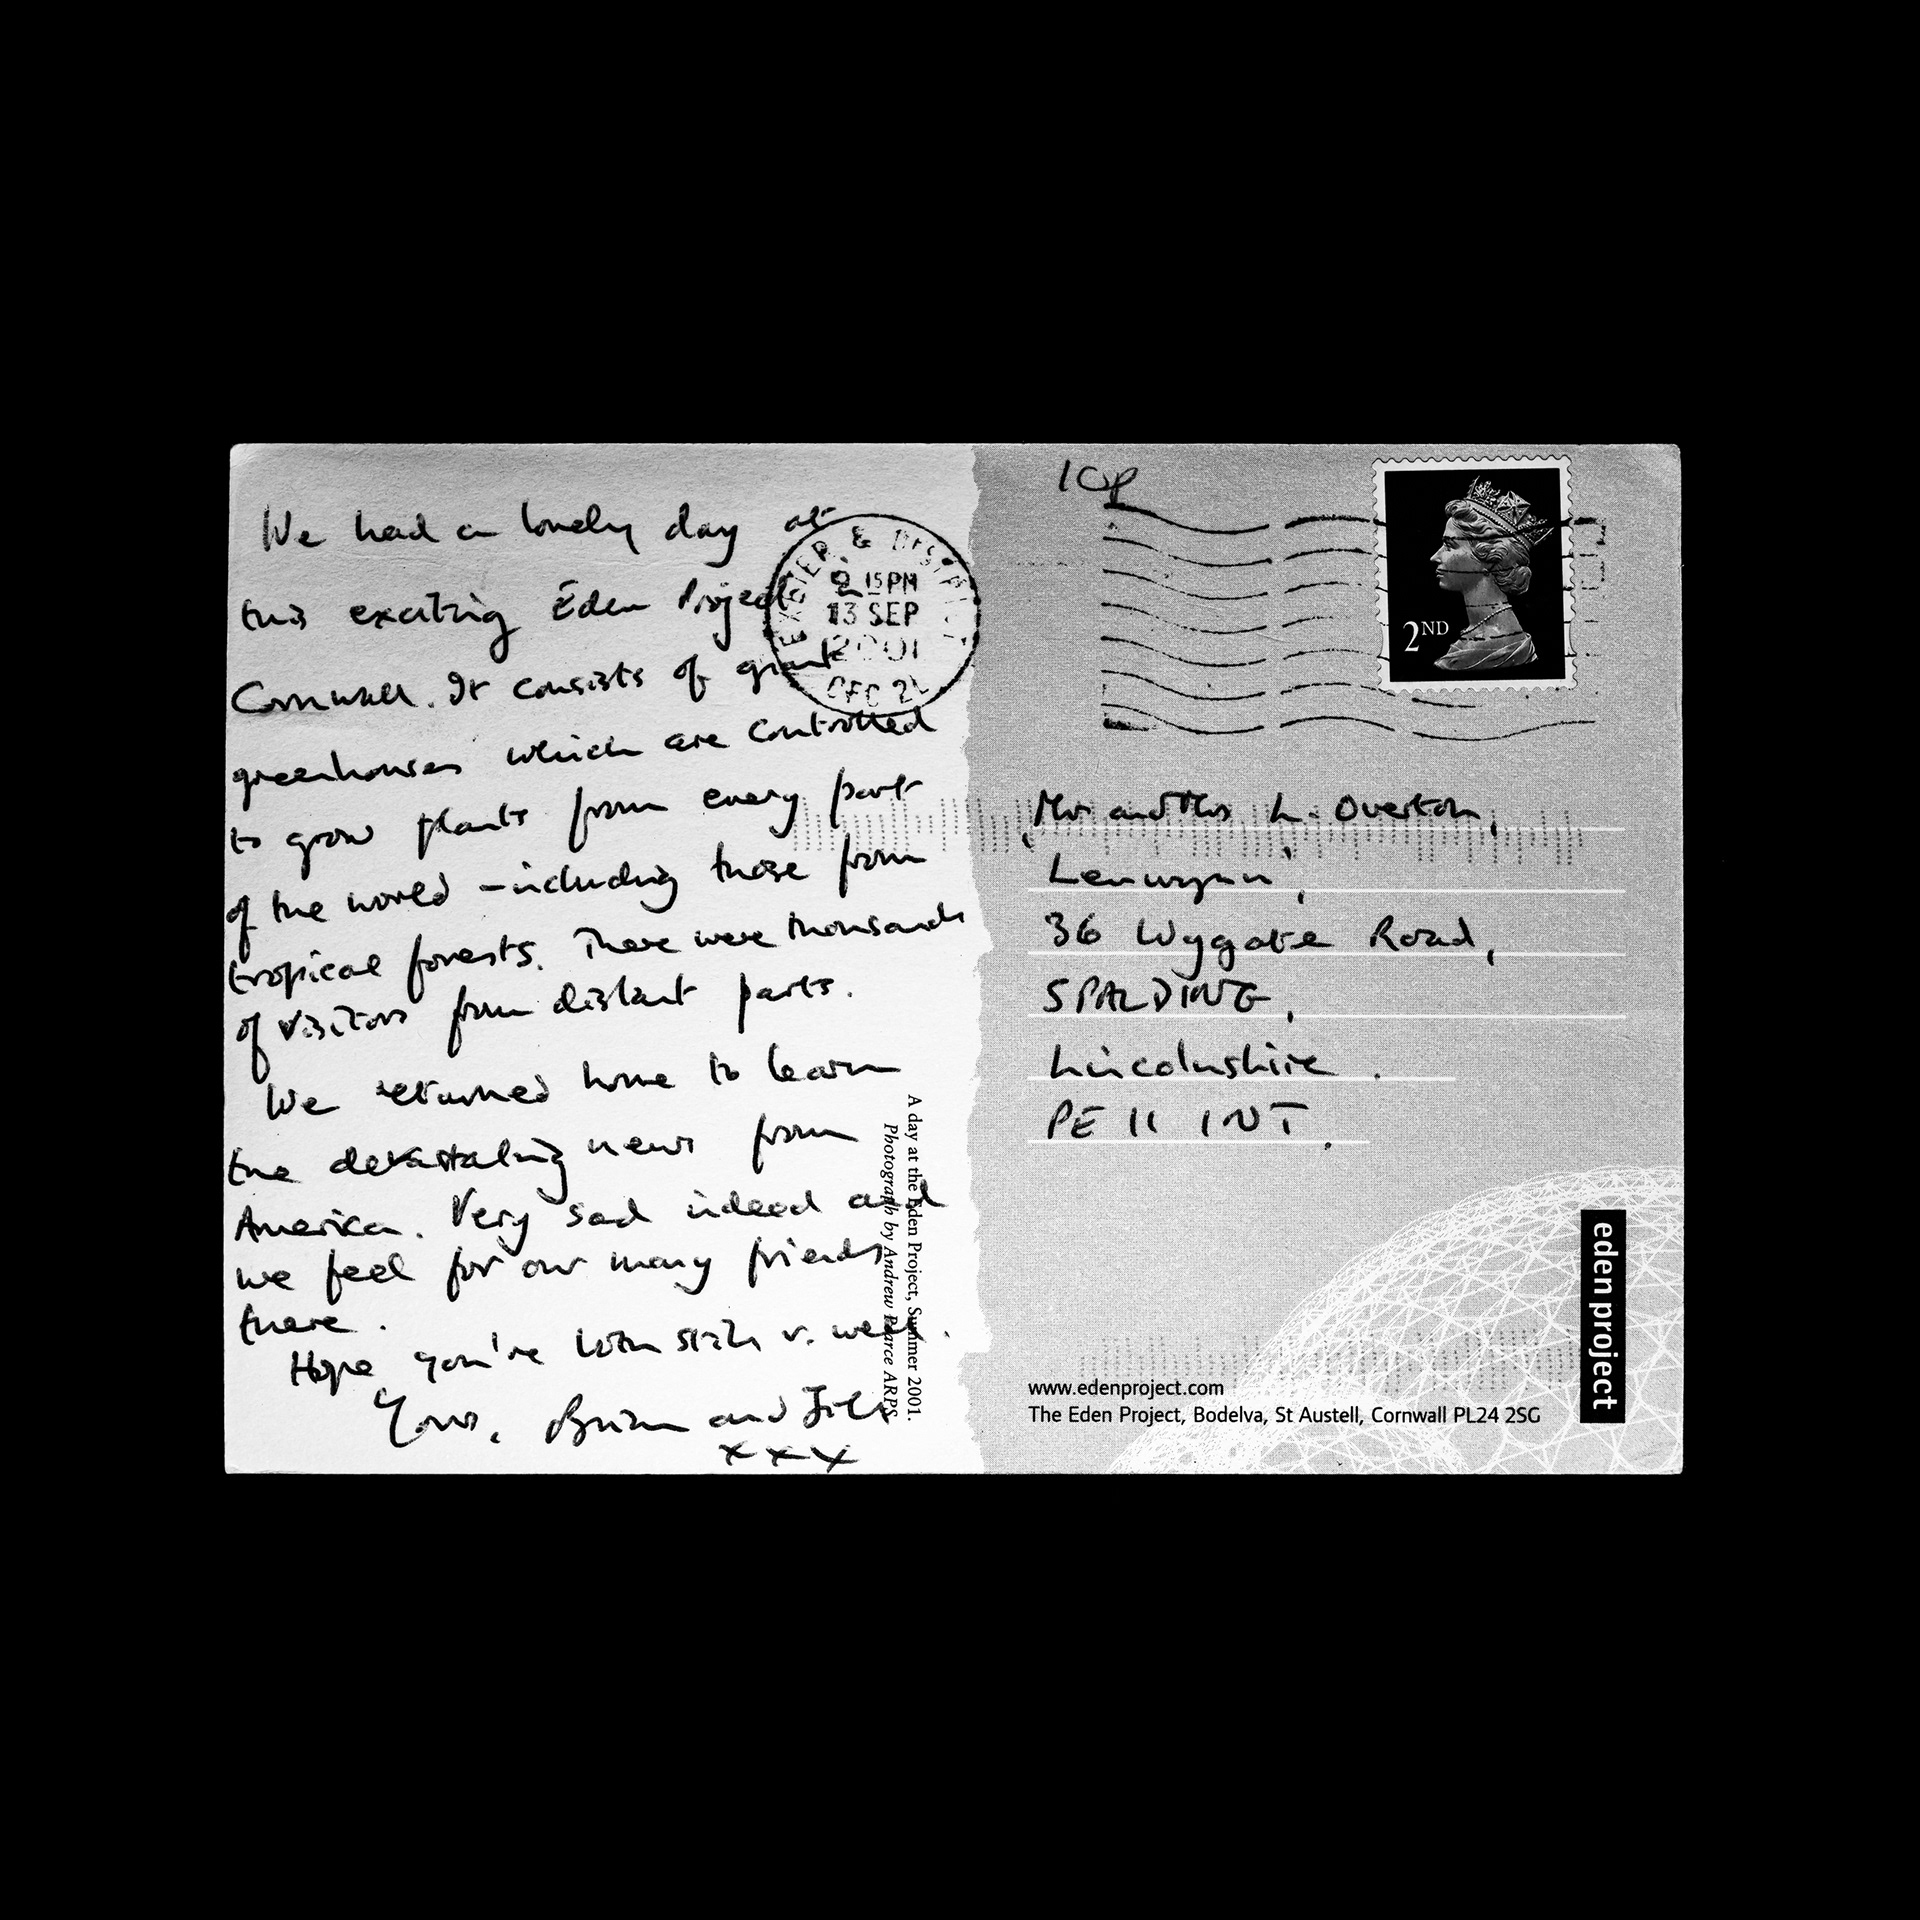 We had a lovely day at
this exciting Eden Project
Cornwall. It consists of giant
greenhouses which are controlled
to grow plants from every part
of the world - including those from
tropical forests. There were thousands
of visitors from distant parts.
We returned home to learn
the devastating news from
America. Very sad indeed and
we feel for our many friends
there.
Hope you're both still v. well.
Yours, Brian and Jill
xxx
A day at the Eden Project, Summer 2001.
Photograph by Andrew Pearce ARPS
EXETER & DISTRICT
2 15 PM
13 SEP
2001
10p
2ND
Mr and Mrs L. Overton,
Lenwynn,
36 Wygate Road,
SPALDING,
Lincolnshire.
PE 11 1NT.
www.edenproject.com
The Eden Project, Bodelva, St Austell, Cornwall PL24 2SG
eden project